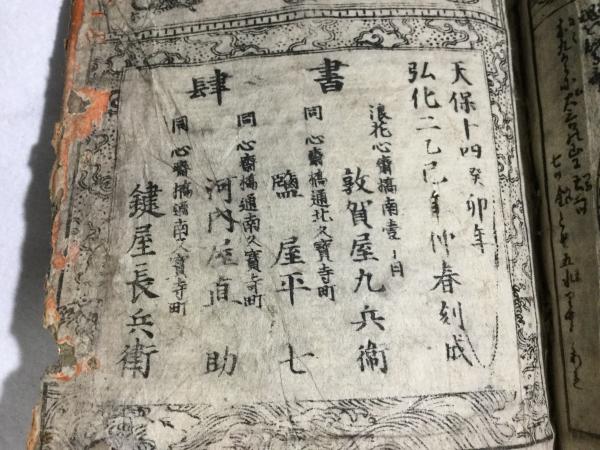 天保十四癸卯年
弘化二乙巳年仲春刻成
書肆
浪花心齋橋南壹丁目
敦賀屋九兵衞
同心齋橋通北久寶寺町
鹽屋平七
同心齋橋通南久寶寺町
河内屋直助
同心齋橋通南久寶寺町
鍵屋長兵衛